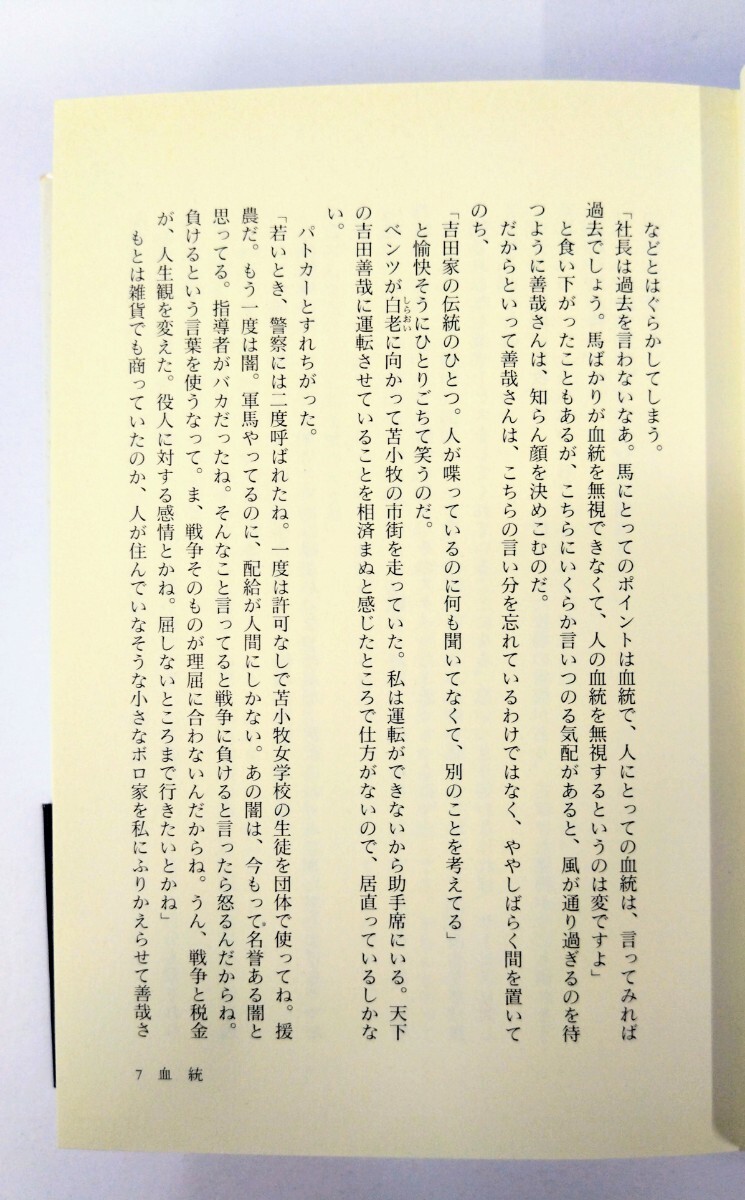 などとはぐらかしてしまう。
「社長は過去を言わないなあ。馬にとってのポイントは血統で、人にとっての血統は、言ってみれば
過去でしょう。馬ばかりが血統を無視できなくて、人の血統を無視するというのは変ですよ」
と食い下がったこともあるが、こちらにいくらか言いつのる気配があると、風が通り過ぎるのを待
つように善哉さんは、知らん顔を決めこむのだ。
だからといって善哉さんは、こちらの言い分を忘れているわけではなく、ややしばらく間を置いて
のち、
「吉田家の伝統のひとつ。人が喋っているのに何も聞いてなくて、別のことを考えてる」
と愉快そうにひとりごちて笑うのだ。
ベンツが白老しらおいに向かって苫小牧の市街を走っていた。私は運転ができないから助手席にいる。天下
の吉田善哉に運転させていることを相済まぬと感じたところで仕方がないので、居直っているしかな
い。
パトカーとすれちがった。
「若いとき、警察には二度呼ばれたね。一度は許可なしで苫小牧女学校の生徒を団体で使ってね。援
農だ。もう一度は闇。軍馬やってるのに、配給が人間にしかない。あの闇は、今もって名誉ある闇と
思ってる。指導者がバカだったね。そんなこと言ってると戦争に負けると言ったら怒るんだからね。
負けるという言葉を使うなって。ま、戦争そのものが理屈に合わないんだからね。うん、戦争と税金
が、人生観を変えた。役人に対する感情とかね。屈しないところまで行きたいとかね」
もとは雑貨でも商っていたのか、人が住んでいなそうな小さなボロ家を私にふりかえらせて善哉さ
7 血統